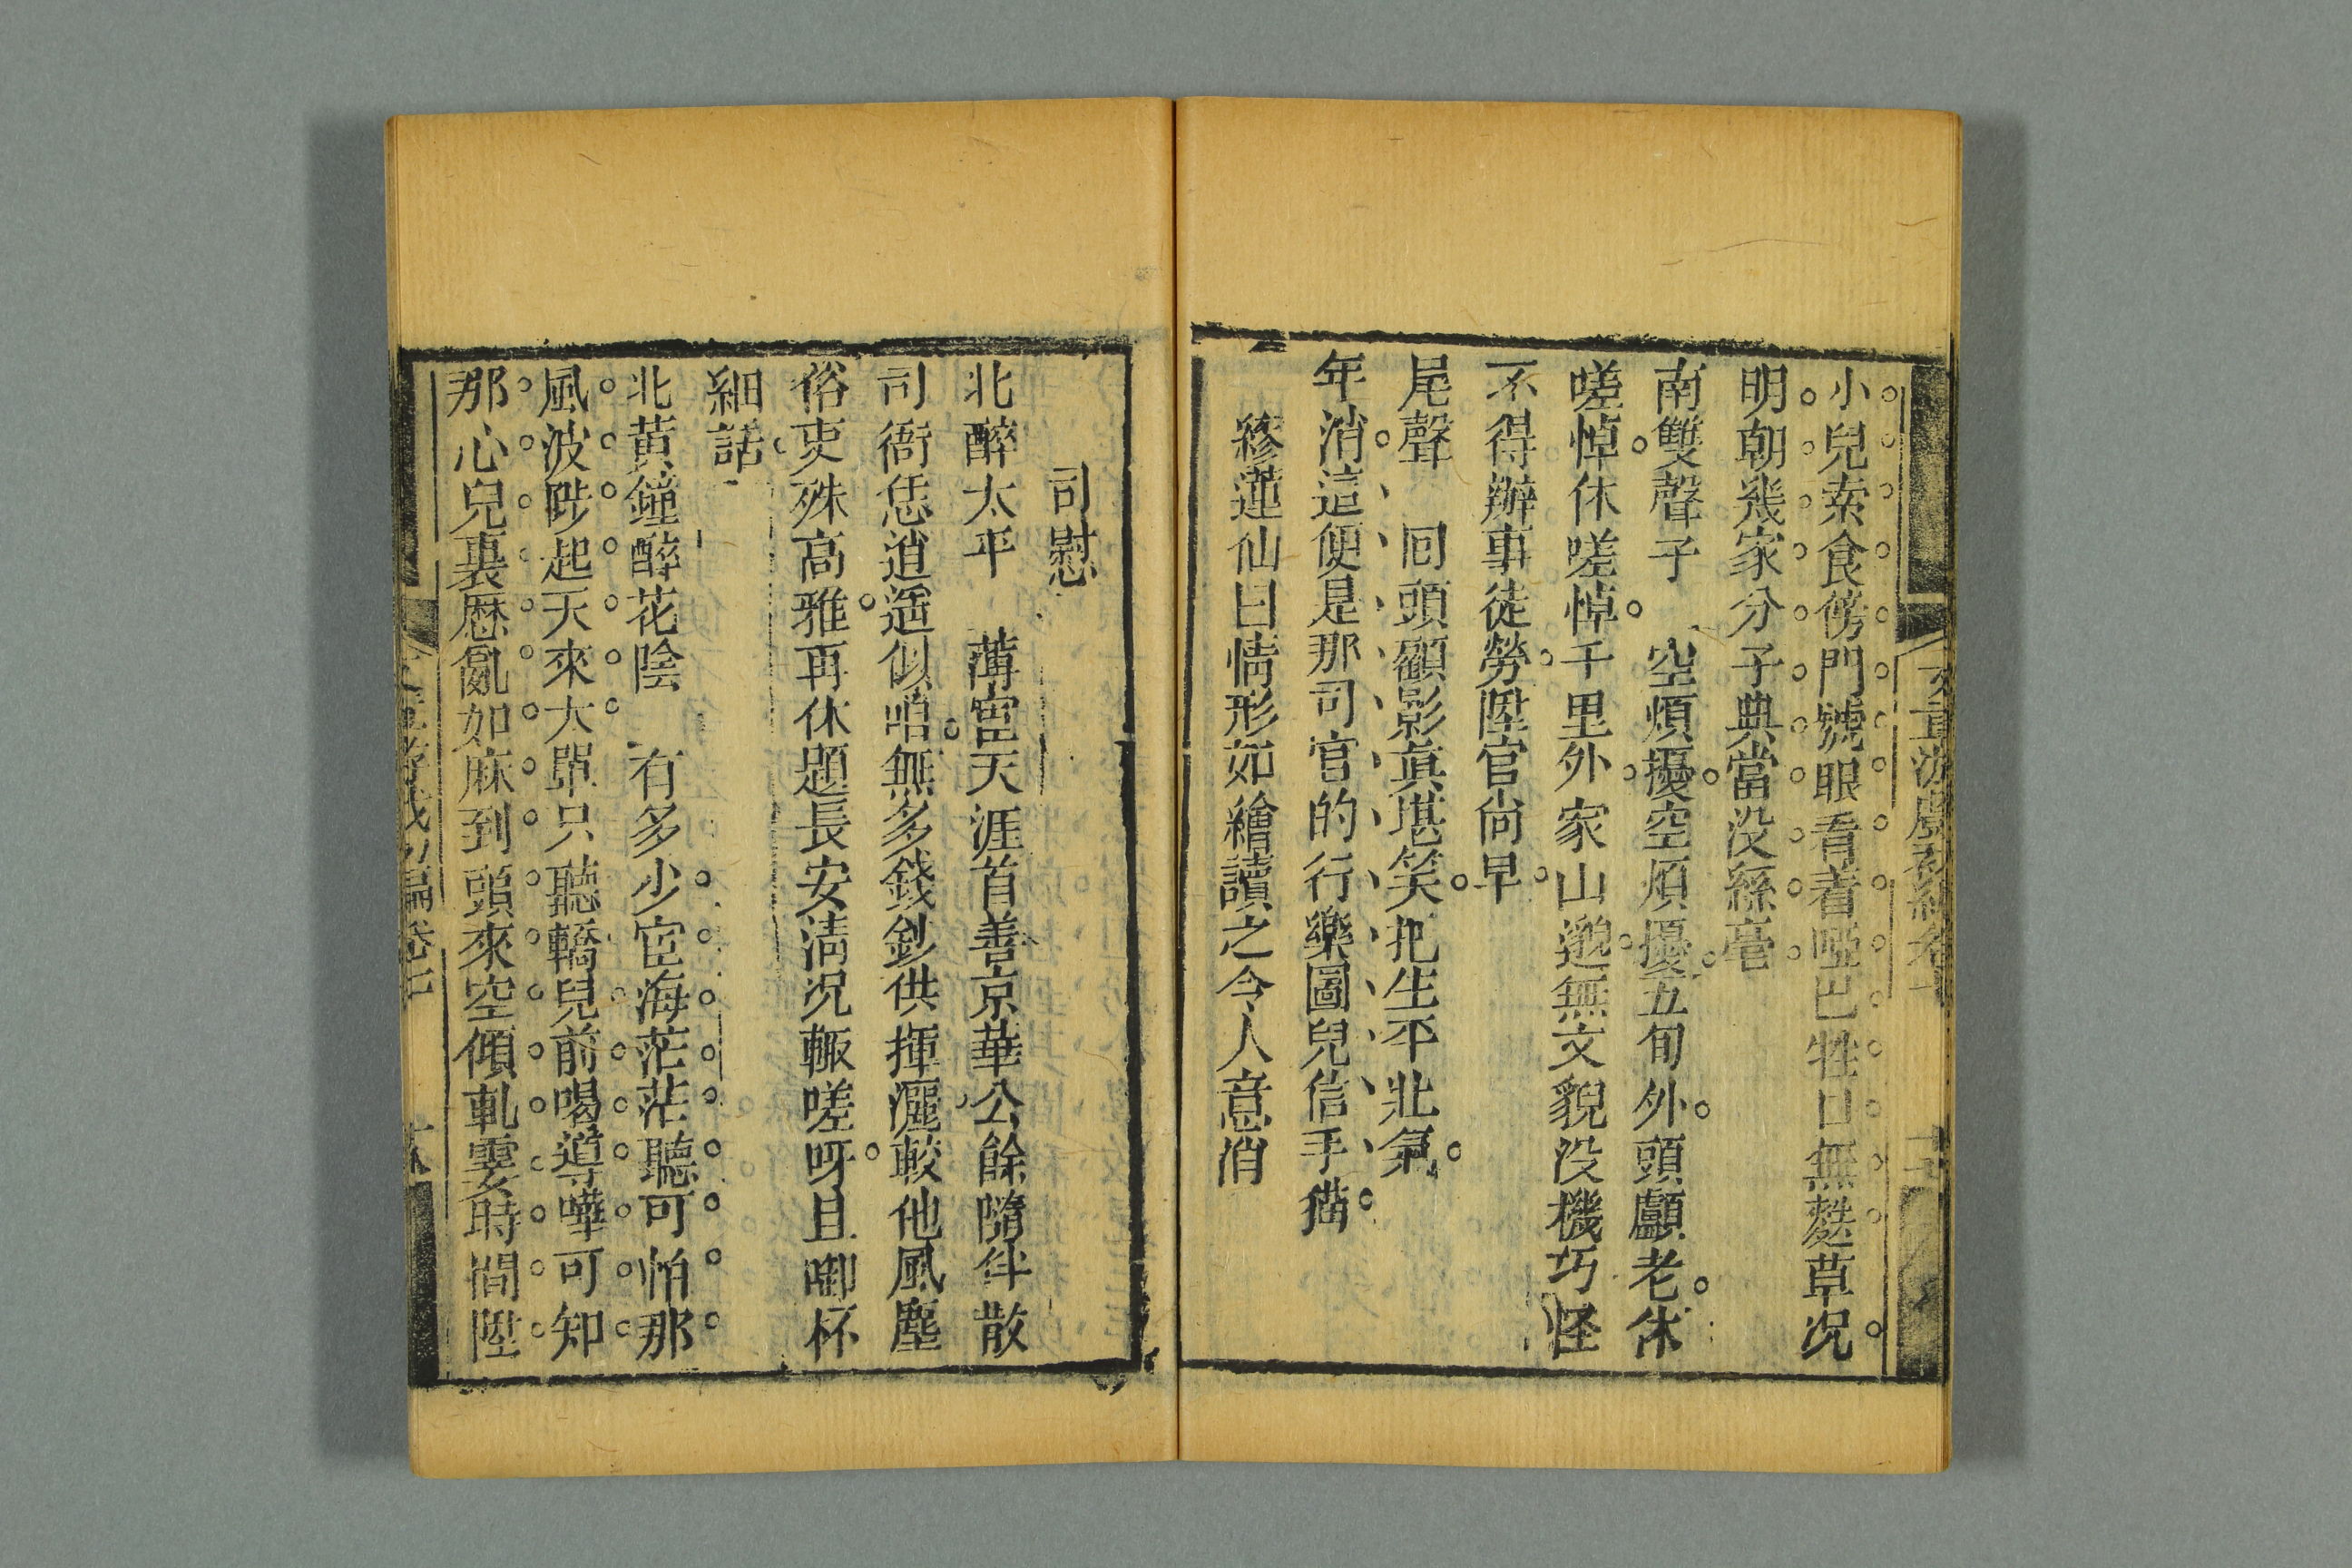 小兒索食傍門號眼看着啞巴牲口無麩草况
明朝幾家分子典當没絲毫
南雙聲子　空煩擾空煩擾五旬外頭顱老休
嗟悼休嗟悼千里外家山邈無文貌没機巧怪
不得辦事徒勞陞官尚早
尾聲　回頭顧影眞堪笑把生平壯氣
年消這便是那司官的行樂圖兒信手描
繆蓮仙曰情形如繪讀之令人意消
司慰
北醉太平　薄宦天涯首善京華公餘隨伴散
司衙恁逍遥似咱無多錢鈔供揮灑較他風塵
俗吏殊高雅再休題長安淸况輒嗟呀且啣杯
細話
北黄鐘醉花陰　有多少宦海茫茫聽可怕那
風波陟起天來大單只聽轎兒前喝導嘩可知
那心兒裏歷亂如麻到頭來空傾軋霎時間陞